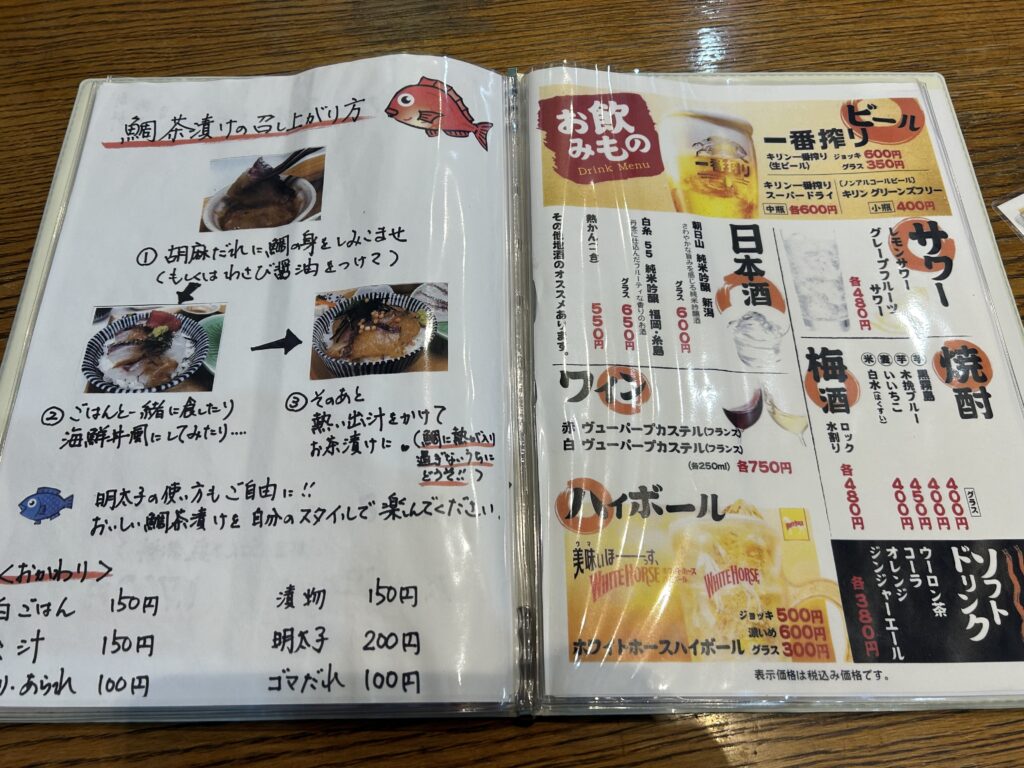 鯛茶漬けの召し上がり方
① 胡麻だれに、鯛の身をしみこませ
(もしくはわさび醤油をつけて)
② ごはんと一緒に食したり
海鮮丼風にしてみたり....
③ そのあと
熱い出汁をかけて
お茶漬けに。
(鯛に熱が入り
過ぎないうちに
どうぞ!!)
明太子の使い方もご自由に!!
おいしい鯛茶漬けを自分のスタイルで楽しんでください。
<おかわり>
白ごはん 150円
汁 150円
あられ 100円
漬物 150円
明太子 200円
ゴマだれ 100円
お飲みもの
Drink Menu
ビール
一番搾り
キリン一番搾り
(生ビール)
ジョッキ 600円
グラス 350円
キリン一番搾り
スーパードライ
中瓶 各600円
(ノンアルコールビール)
キリン グリーンズフリー
小瓶 400円
一番搾り
日本酒
朝日山 純米吟醸 新潟
さわやかな旨みを感じる純米吟醸酒
グラス 600円
白糸 55 純米吟醸 福岡・糸島
丹念に仕込んだフルーティな香りのお酒
グラス 650円
熱かん(一合) 550円
その他地酒のオススメあります。
サワー
レモンサワー
グレープフルーツ
サワー
各480円
ワイン
赤 ヴューパープカステル(フランス)
白 ヴューパープカステル(フランス)
(各250ml) 各750円
焼酎
グラス
芋 黒霧島 400円
芋 木挽ブルー 400円
麦 いいちこ 450円
米 白水(はくすい) 400円
梅酒
ロック
水割り
各480円
ハイボール
美味いほーーーっす、
ウマ
WHITE HORSE
ホワイトホース
WHITE HORSE
ホワイトホースハイボール
ジョッキ 500円
濃いめ 600円
グラス 300円
ソフトドリンク
ウーロン茶
コーラ
オレンジ
ジンジャーエール
各380円
表示価格は税込み価格です。